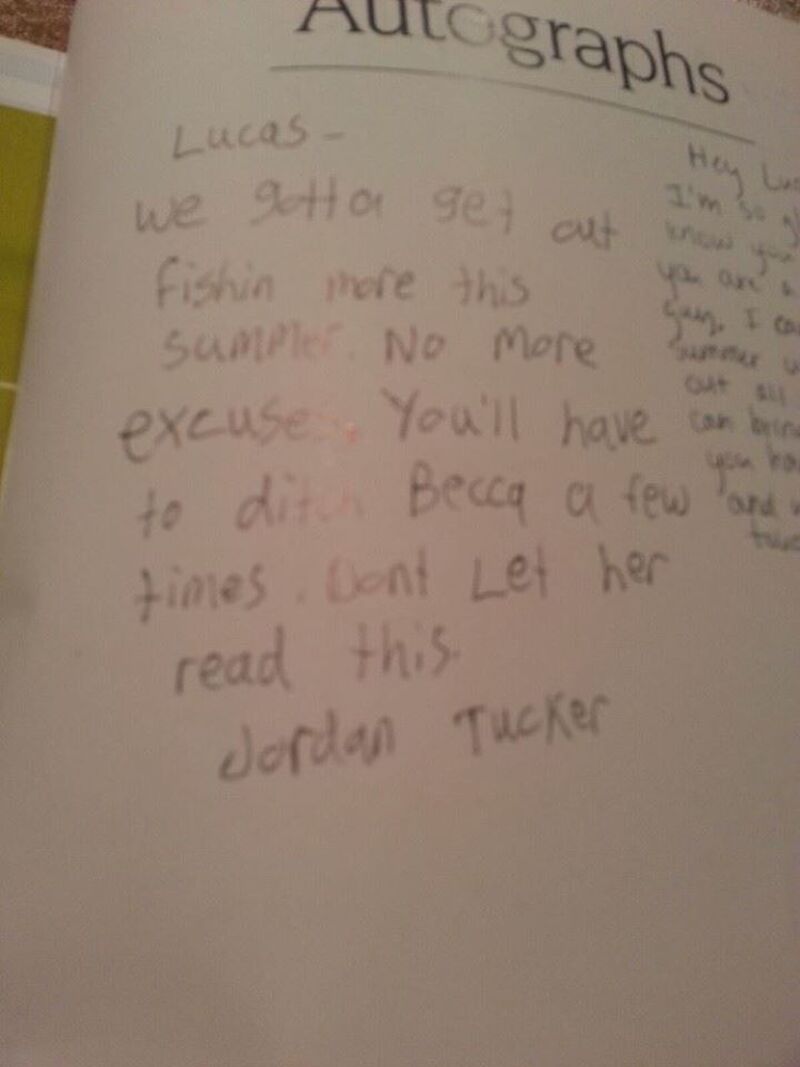 Autographs
Lucas-
we gotta get out
fishin more this
summer. No more
excuses. You'll have
to ditch Becca a few
times. Dont Let her
read this.
Jordan Tucker
Hey
I'm so
know you
you are a
guy. I
summer
out all
can
you
and